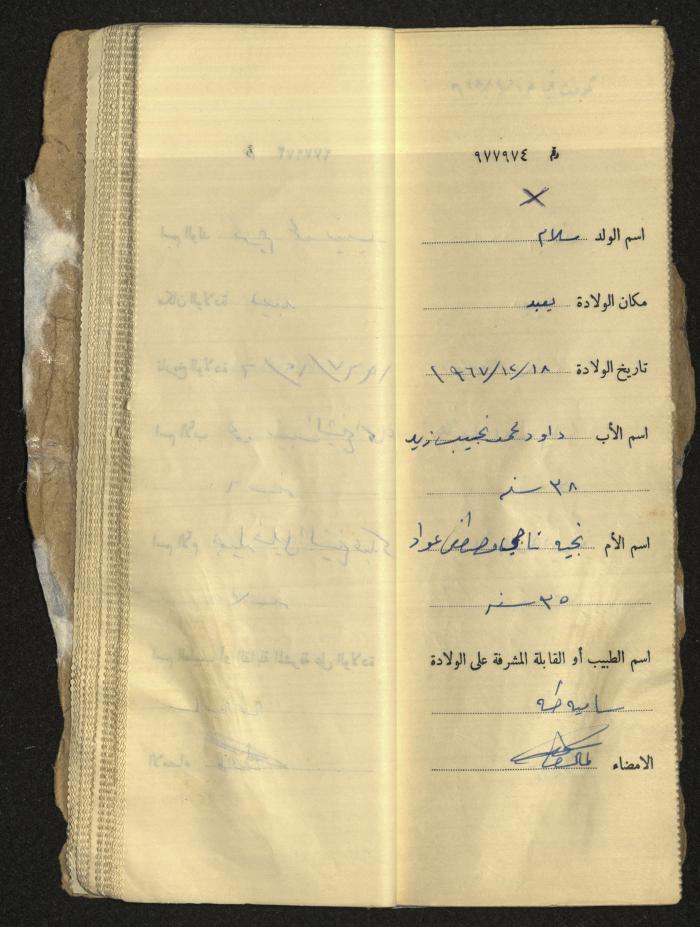 رقم ٩٧٧٩٧٤
X
اسم الولد سلام
مكان الولادة يعبد
تاريخ الولادة ١٨/١٢/١٩٦٧
اسم الأب داود محمد نجيب زيد
٣٨ سنه
اسم الأم نجيه ناجي مصطفى عواد
٣٥ سنه
اسم الطبيب أو القابلة المشرفة على الولادة
ساميه طه
الامضاء